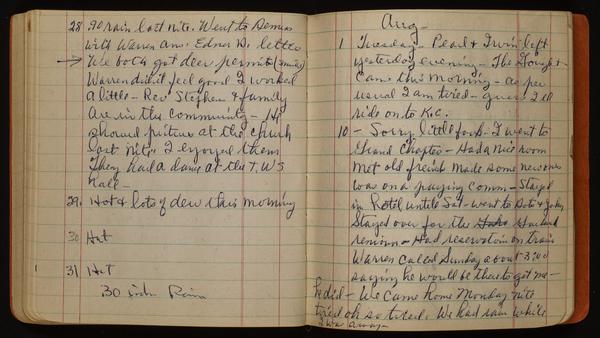 28 .90 rain last nite. Went to
with Warren Ans. Edner D. letter
We both got deer permit
Warren didn't feel good I worked
a little - Rev Stephen & family
are in the community - He
showed picture at the church
last nite. I enjoyed them
They had a dance at the T.W.S
Hall -
29. Hot & lots of dew this morning
30 Hot
31 Hot
.30 inch Rain
Aug -
1 Tuesday - Pearl & Irvin left
yesterday evening - The
this morning - as per
usual I am tired - guess I'll
ride on to K.C.
10 - Sorry little book - I went to
Grand Chapter - Had a nice room
Met old friends made some new ones
was on a paying comm - Stayed
in Hotel until Sat - went to &
Stayed over for the
reunion - Had reservation on train
Warren called Sunday about 3:00
saying he would be there to get me -
he did - We came home Monday nite
tired oh so tired. We had rain while
I was away -